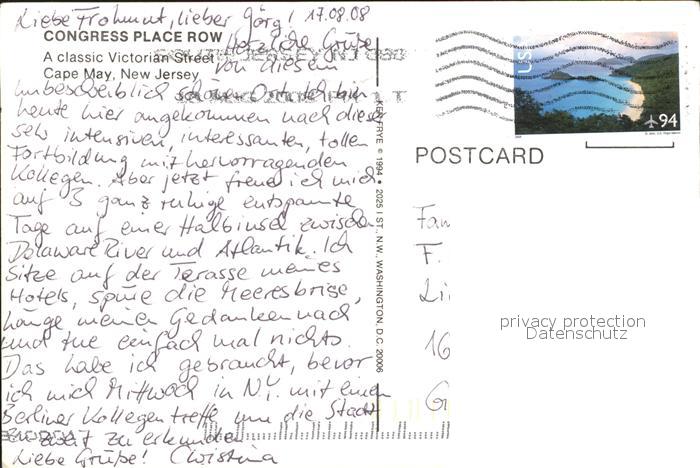 Liebe Frohmut, lieber Jörg! 17.08.08
CONGRESS PLACE ROW
Herzliche Grüße
A classic Victorian Street
von diesem
Cape May, New Jersey
unbeschreiblich schönen Ort. Ich bin
heute hier angekommen nach dieser
sehr intensiven, interessanten, tollen
Fortbildung mit hervorragenden
Kollegen. Aber jetzt freue ich mich
auf 3 ganz ruhige entspannte
Tage auf einer Halbinsel zwischen
Delaware River und Atlantik. Ich
sitze auf der Terasse meines
Hotels, spüre die Meeresbrise,
hänge meinen Gedanken nach
und tue einfach mal nichts.
Das habe ich gebraucht, bevor
ich mich Mittwoch in N.Y. mit einem
Berliner Kollegen treffe um die Stadt
zu erkunden
Liebe Grüße! Christina
KEN FRYE © 1994 • 2025 I ST. N.W., WASHINGTON, D.C. 20006
US
94
POSTCARD
Fam
F.
Li
16
G
privacy protection
Datenschutz